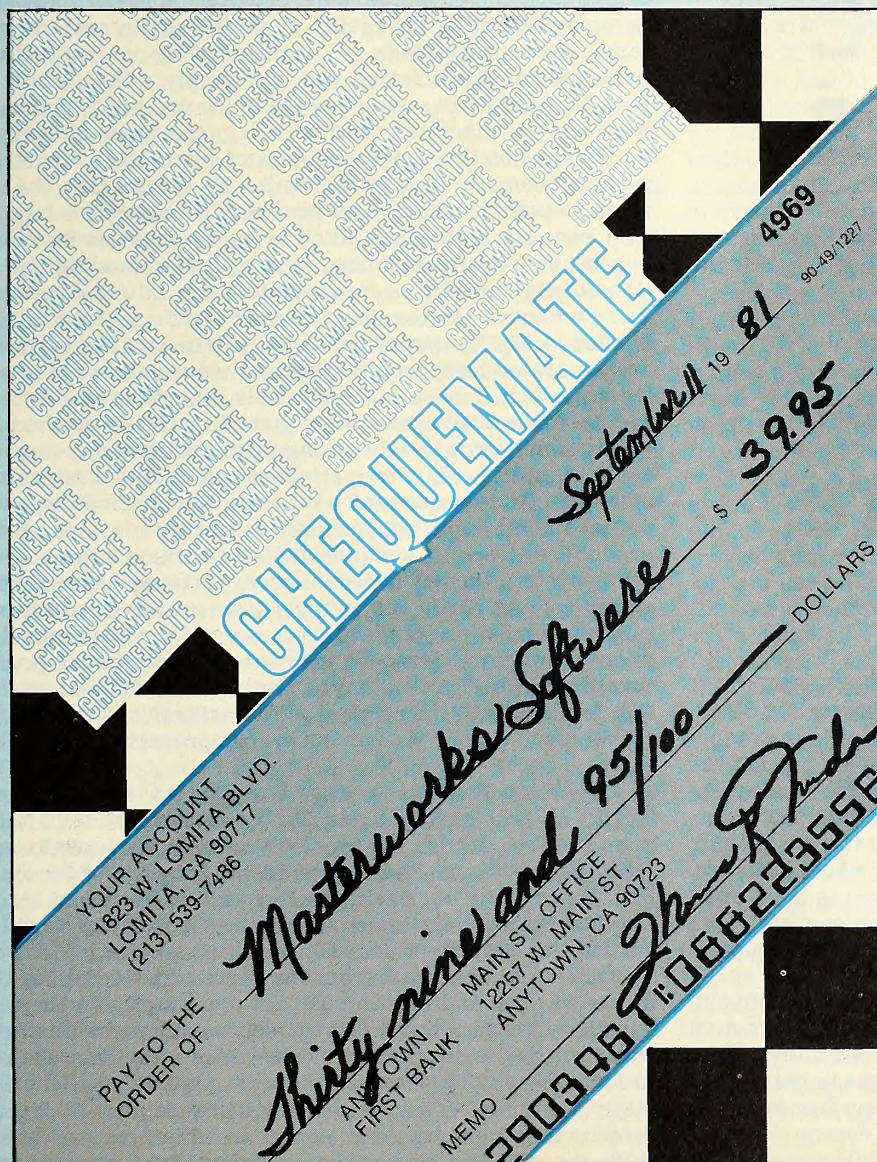 CHEQUEMATE
CHEQUEMATE
CHEQUEMATE
CHEQUEMATE
CHEQUEMATE
CHEQUEMATE
CHEQUEMATE
CHEQUEMATE
CHEQUEMATE
CHEQUEMATE
CHEQUEMATE
CHEQUEMATE
CHEQUEMATE
4969
90-49/1227
September 11 19 81
YOUR ACCOUNT
1823 W. LOMITA BLVD.
LOMITA, CA 90717
(213) 539-7486
PAY TO THE
ORDER OF Masterworks Software $ 39.95
Thirty nine and 95/100 DOLLARS
ANYTOWN
FIRST BANK
MAIN ST. OFFICE
12257 W. MAIN ST.
ANYTOWN, CA 90723
MEMO
066223556